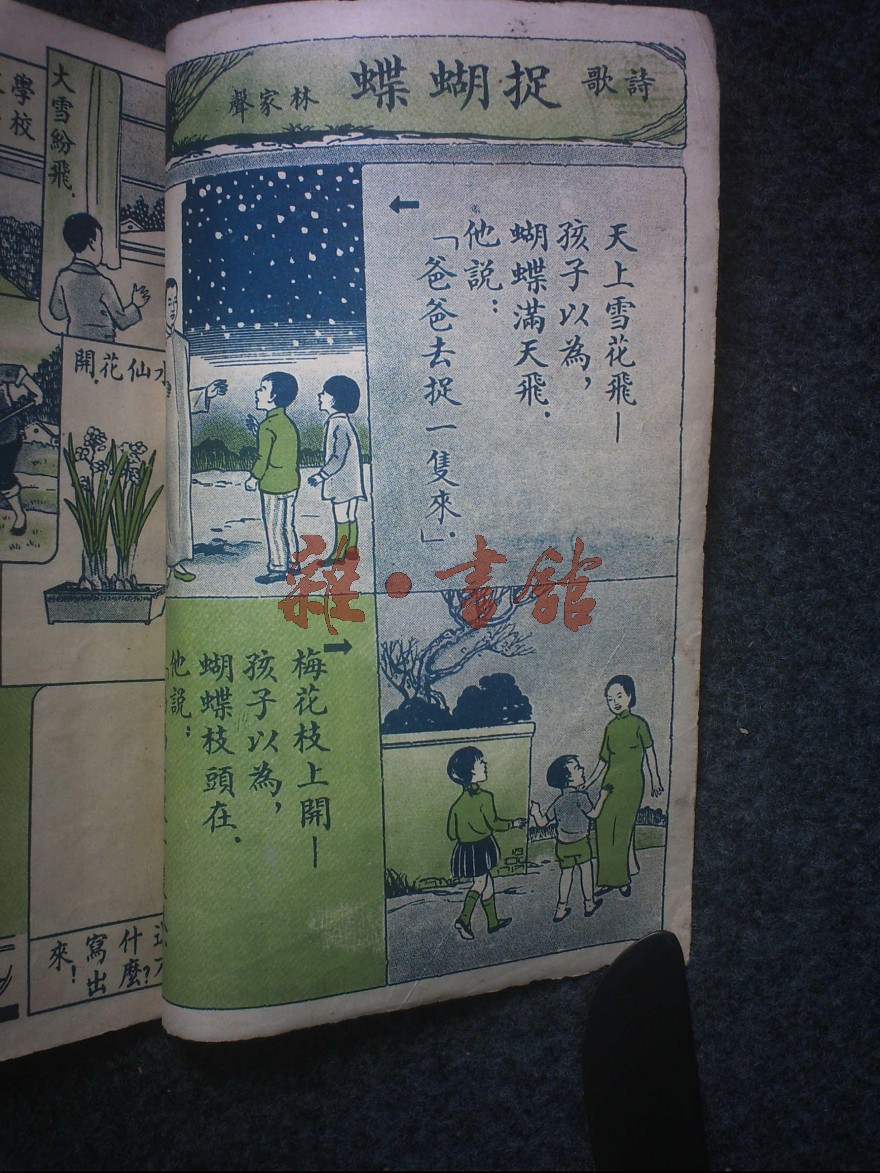 詩歌
捉蝴蝶
林家聲
天上雪花飛—
孩子以為，
蝴蝶滿天飛．
他說：
「爸爸去捉一隻來」．
梅花枝上開—
孩子以為，
蝴蝶枝頭在．
他說：
雜·書館
大雪紛飛．
學校
仙花開．
什麼？
寫出
來！